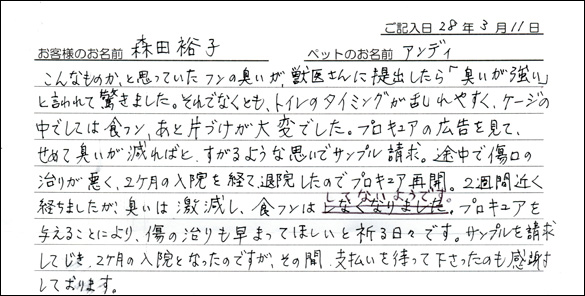 ご記入日 28年3月11日
お客様のお名前 森田裕子 ペットのお名前 アンディ
こんなものか、と思っていたフンの臭いが、獣医さんに提出したら「臭いが強い」
と言われて驚きました。それでなくとも、トイレのタイミングが乱れやすく、ケージの
中でしては食フン、あと片づけが大変でした。プロキュアの広告を見て、
せめて臭いが減ればと、すがるような思いでサンプル請求。途中で傷口の
治りが悪く、2ケ月の入院を経て、退院したのでプロキュア再開。2週間近く
経ちましたが、臭いは激減し、食フンはしてないようです。プロキュアを
与えることにより、傷の治りも早まってほしいと祈る日々です。サンプルを請求
してじき、2ケ月の入院となったのですが、その間、支払いを待って下さったのも感謝
しております。